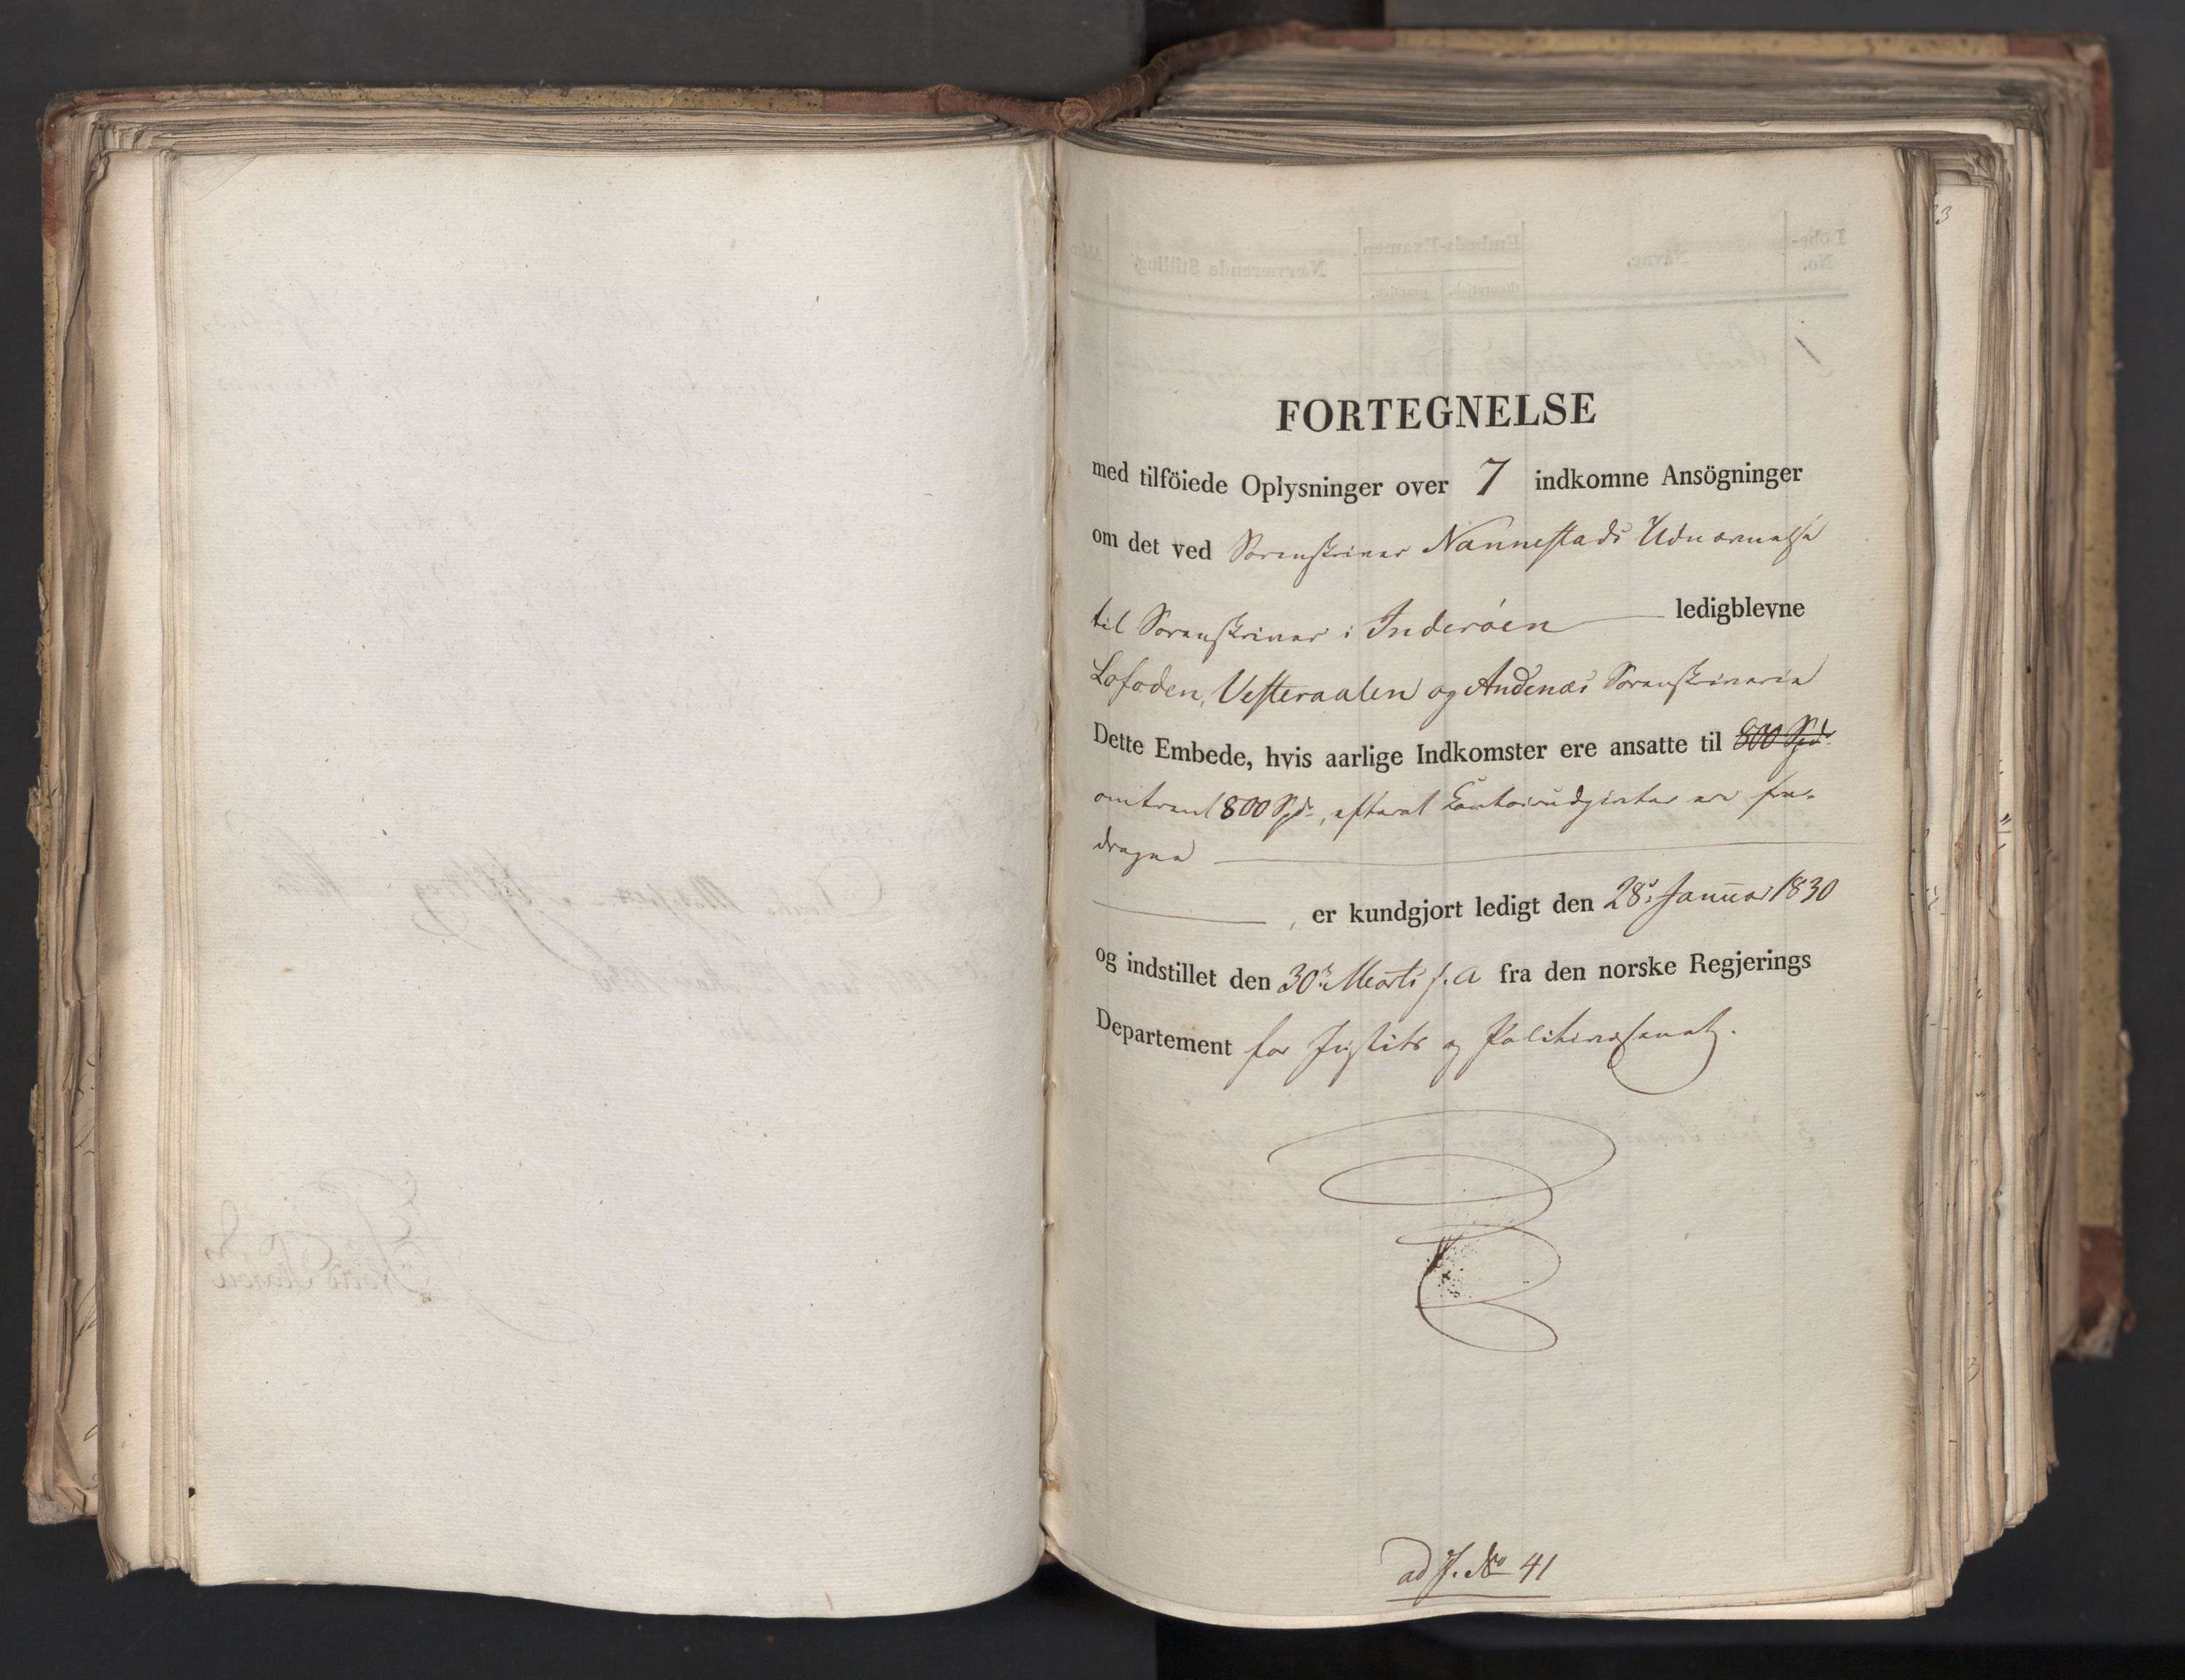 FORTEGNELSE
med tilföiede Oplysninger over 7 indkomne Ansögninger
om det ved Sorenskriver Nannestads Udnævnelse
til Sorenskriver i Inderöen ledigblevne
Lofoden, Vesteraalen og Andenæs Sorenskriverie
Dette Embede, hvis aarlige Indkomster ere ansatte til 800 Spd
omtrent 800 Spd, efterat Contoirudgivter ere fra-
dragne
, er kundgjort ledigt den 28. Januar 1830
og indstillet den 30. Marts s. A fra den norske Regjerings
Departement for Justits og Politievæsenet.
ad J. No 41